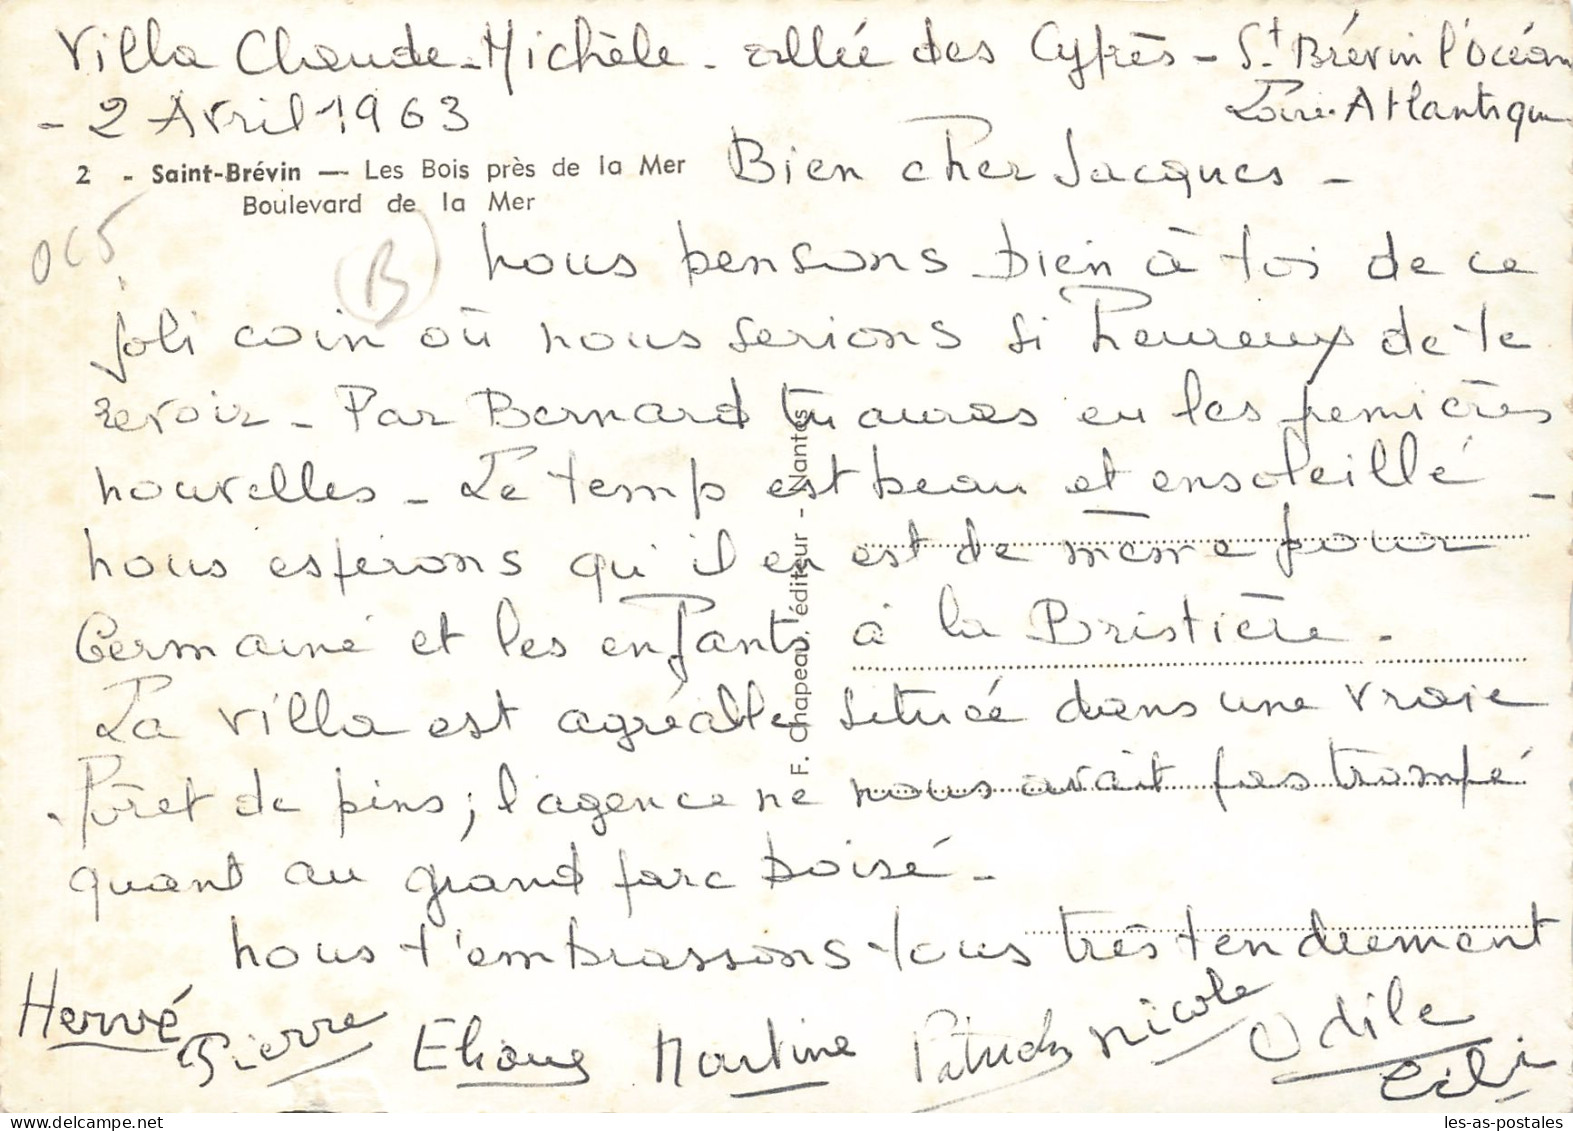 Villa Claude-Michèle - allée des Cyprès - St Brévin l'Océan
Loire-Atlantique
- 2 Avril 1963
2 - Saint-Brévin — Les Bois près de la Mer
Boulevard de la Mer
Bien cher Jacques -
065
B
nous pensons bien à toi de ce
joli coin où nous serions si heureux de te
revoir - Par Bernard tu auras eu les premières
nouvelles - Le temps est beau et ensoleillé -
nous espérons qu'il en est de même pour
Germaine et les enfants à la Bristière -
La villa est agréable située dans une vraie
forêt de pins; l'agence ne nous avait pas trompé
quant au grand parc boisé -
nous t'embrassons tous très tendrement
Hervé Pierre Eliane Martine Nicole Odile
F. Chapeau, éditeur - Nantes
les-as-postales.com